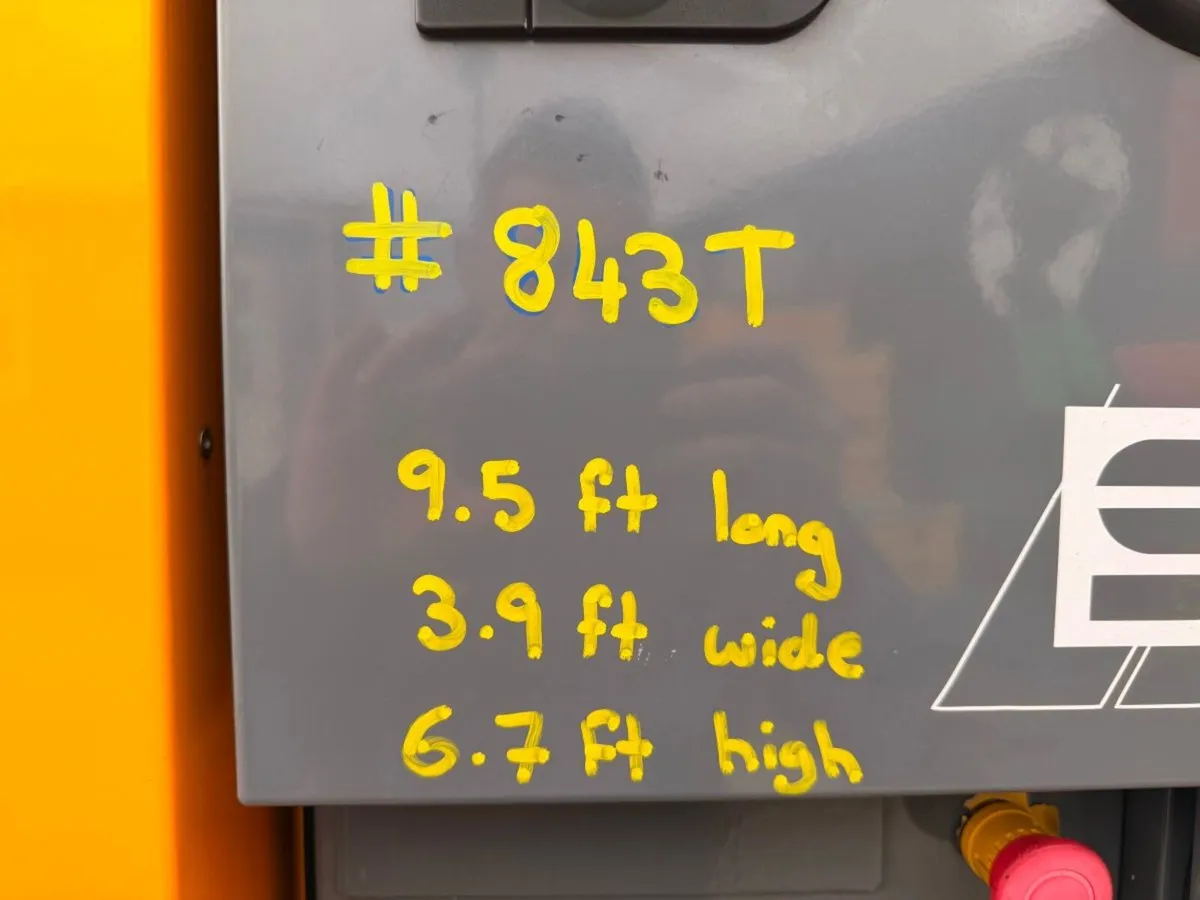 # 843T
9.5 ft long
3.9 ft wide
6.7 ft high